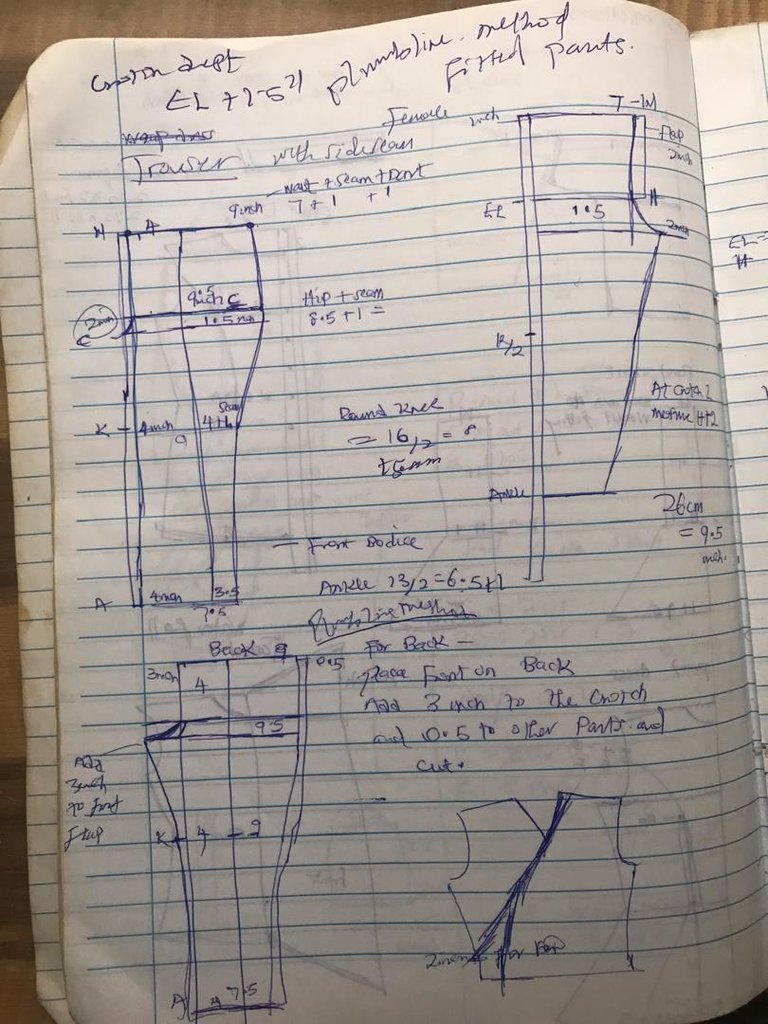 plumbline method
EL + 1.5"
Fitted Pants.
Female
Trouser with sideseam
waist + seam + Dart
9inch 7 + 1 + 1
W A
9.5
9inch C
1.5 inch
2inch
C
Hip + seam
8.5 + 1 =
K 4inch
9
4+1
seam
Round knee
= 16/2 = 8
+seam
Front Bodice
A 4inch 3.5
7.5
Ankle 13/2 = 6.5+1
Plumbline method
inch
Flap
2inch
EL
1.5
H
2inch
K/2
Ankle
At crotch
H+2
26cm
= 9.5
inch.
EL=
H
Back 9 0.5
3inch
4
9.5
Add
3inch
to front
flap
K 4 9
A 4 7.5
For Back —
place Front on Back
Add 3 inch to the crotch
and 0.5 to other Parts and
cut.
for Flap